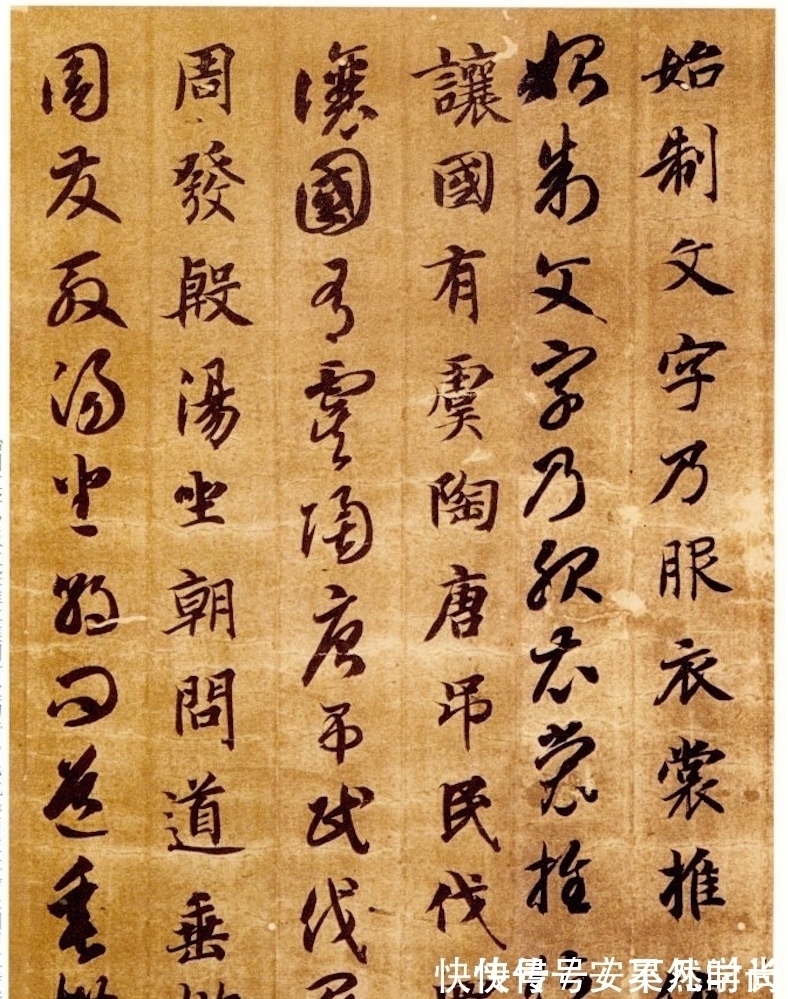 始制文字乃服衣裳推
始制文字乃服衣裳推
讓國有虞陶唐吊民伐
讓國有虞陶唐吊民伐
周發殷湯坐朝問道垂
周發殷湯坐朝問道垂
快传号